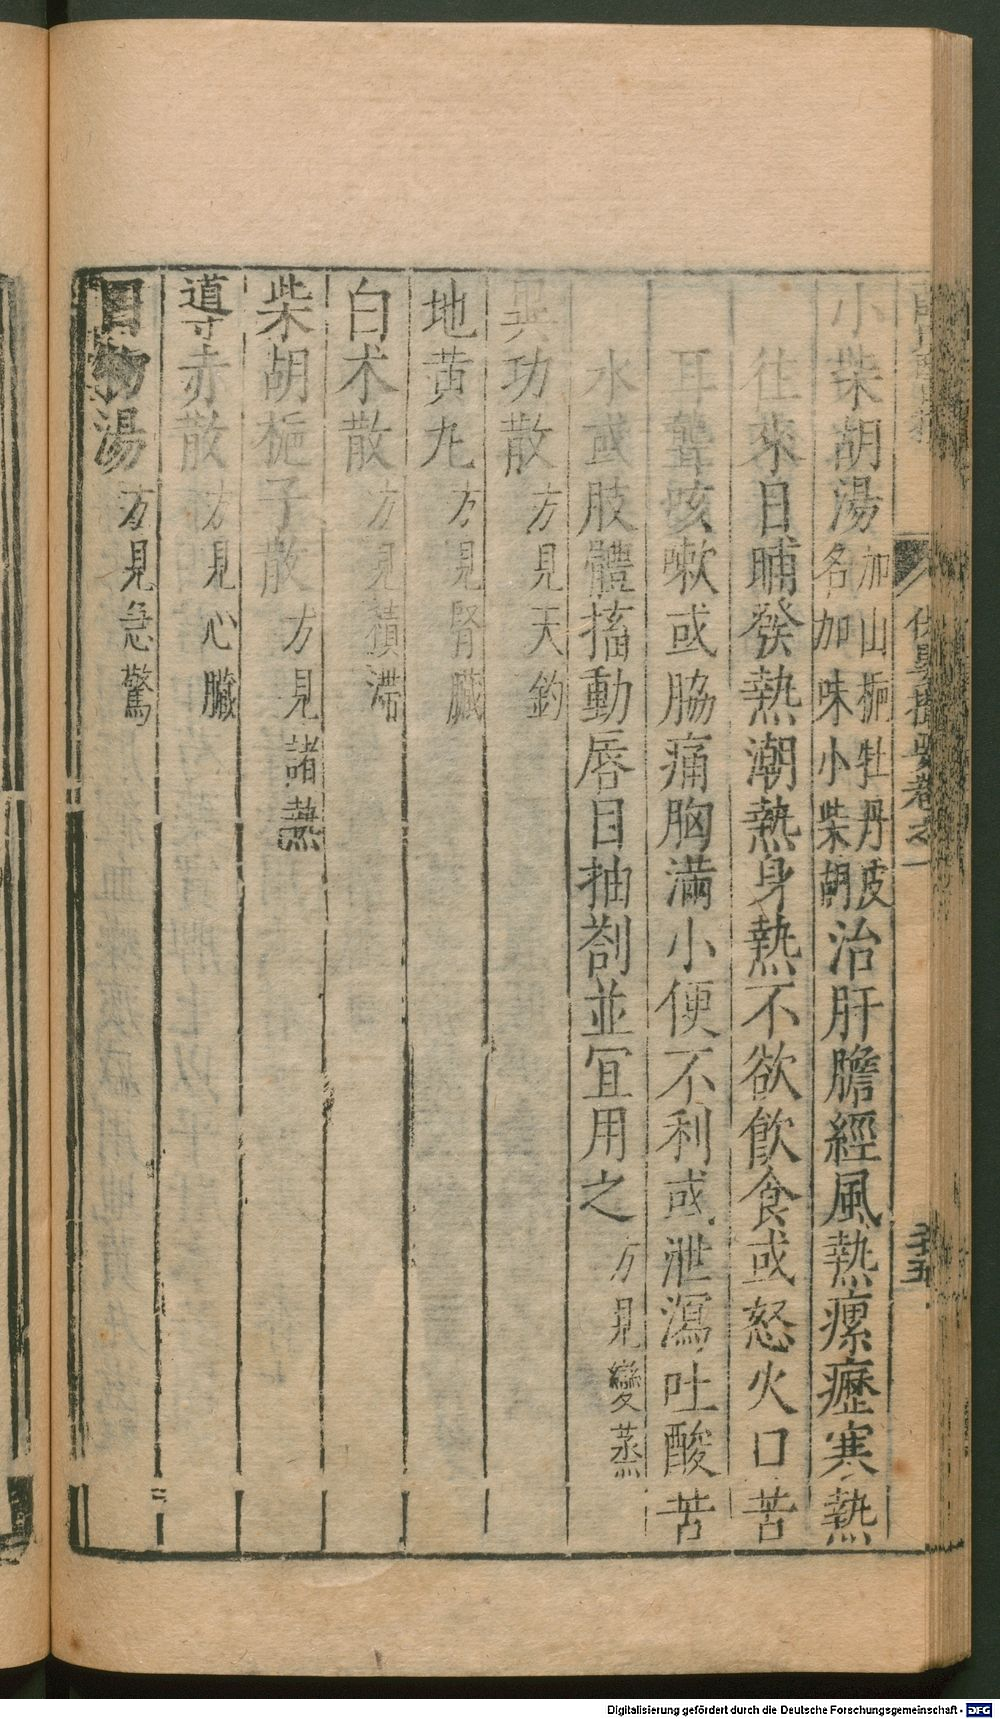 小柴胡湯加山梔牡丹皮名加味小柴胡治肝膽經風熱瘰癧寒熱
往來日晡發熱潮熱身熱不欲飲食或怒火口苦
耳聾咳嗽或脇痛胸滿小便不利或泄瀉吐酸苦
水或肢體搐動唇目抽劄並宜用之方見變蒸
異功散方見天釣
地黃丸方見腎臟
白朮散方見積滯
柴胡梔子散方見諸熱
導赤散方見心臟
物湯方見急驚
保嬰撮要卷之一
Digitalisierung gefördert durch die Deutsche Forschungsgemeinschaft - DFG